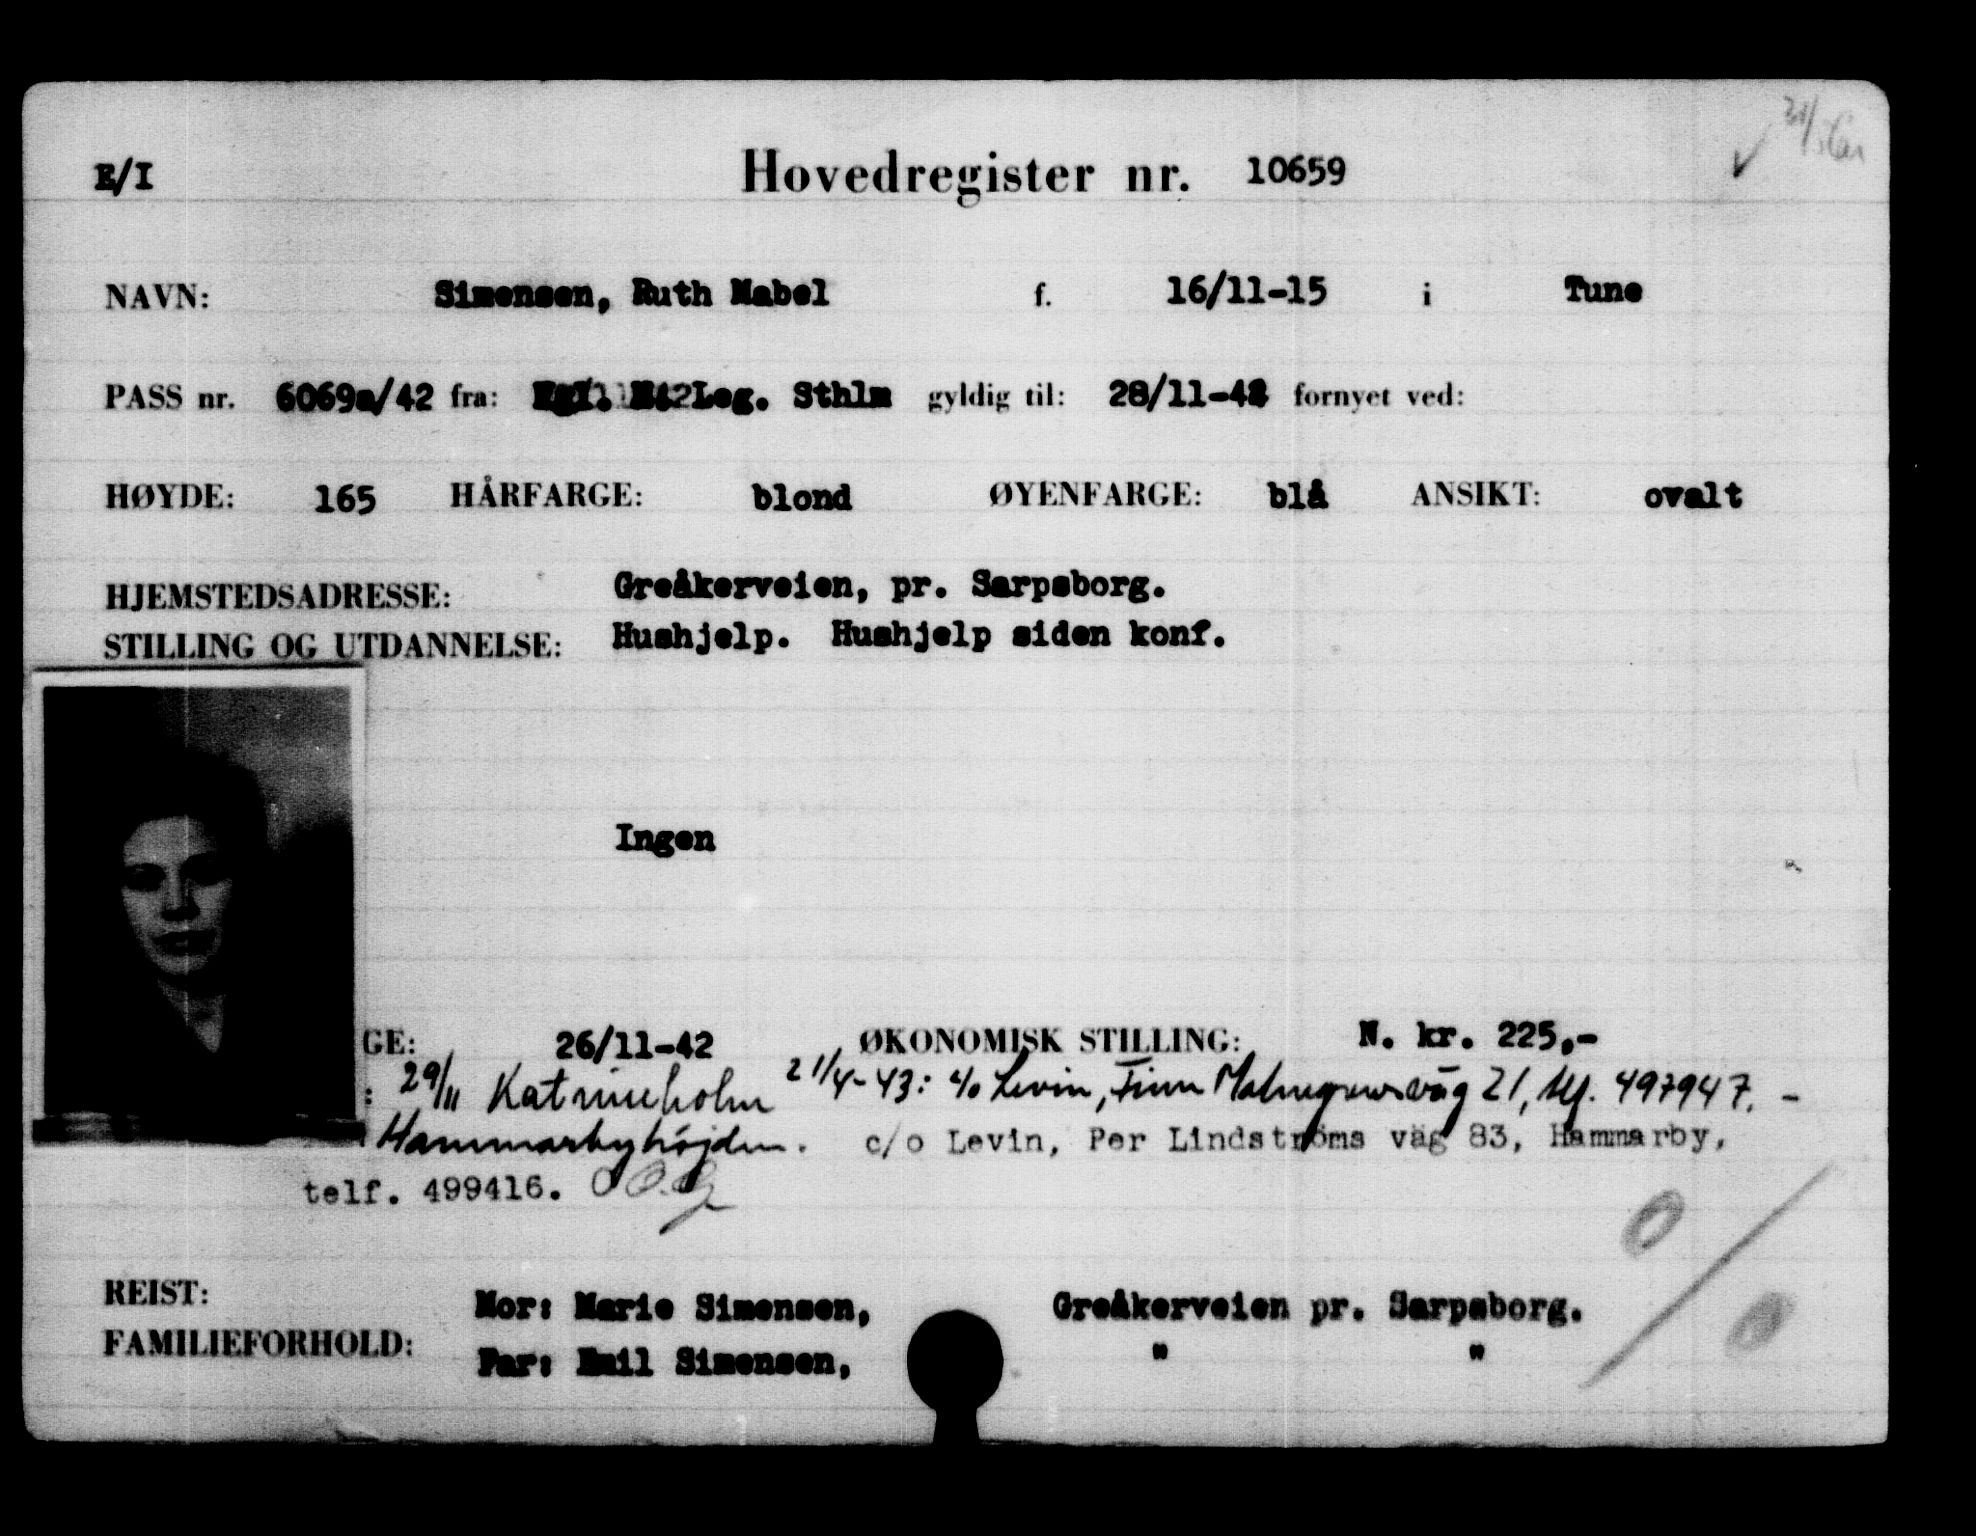 E/I Hovedregister nr. 10659
NAVN: Simensen, Ruth Mabel f. 16/11-15 i Tune
PASS nr. 6069a/42 fra: Kgl. N. Leg. Sthlm gyldig til: 28/11-43 fornyet ved:
HØYDE: 165 HÅRFARGE: blond ØYENFARGE: blå ANSIKT: ovalt
HJEMSTEDSADRESSE: Greåkerveien, pr. Sarpsborg.
STILLING OG UTDANNELSE: Hushjelp. Hushjelp siden konf.
Ingen
GE: 26/11-42 ØKONOMISK STILLING: N. kr. 225,-
: 29/11 Katrineholm 21/4-43: c/o Levin, Finn Malmgrensväg 21, tlf. 497947. -
Hammarbyhöjden. c/o Levin, Per Lindströms väg 83, Hammarby,
telf. 499416.
REIST:
FAMILIEFORHOLD: Mor: Marie Simensen, Greåkerveien pr. Sarpsborg.
Far: Emil Simensen, " "